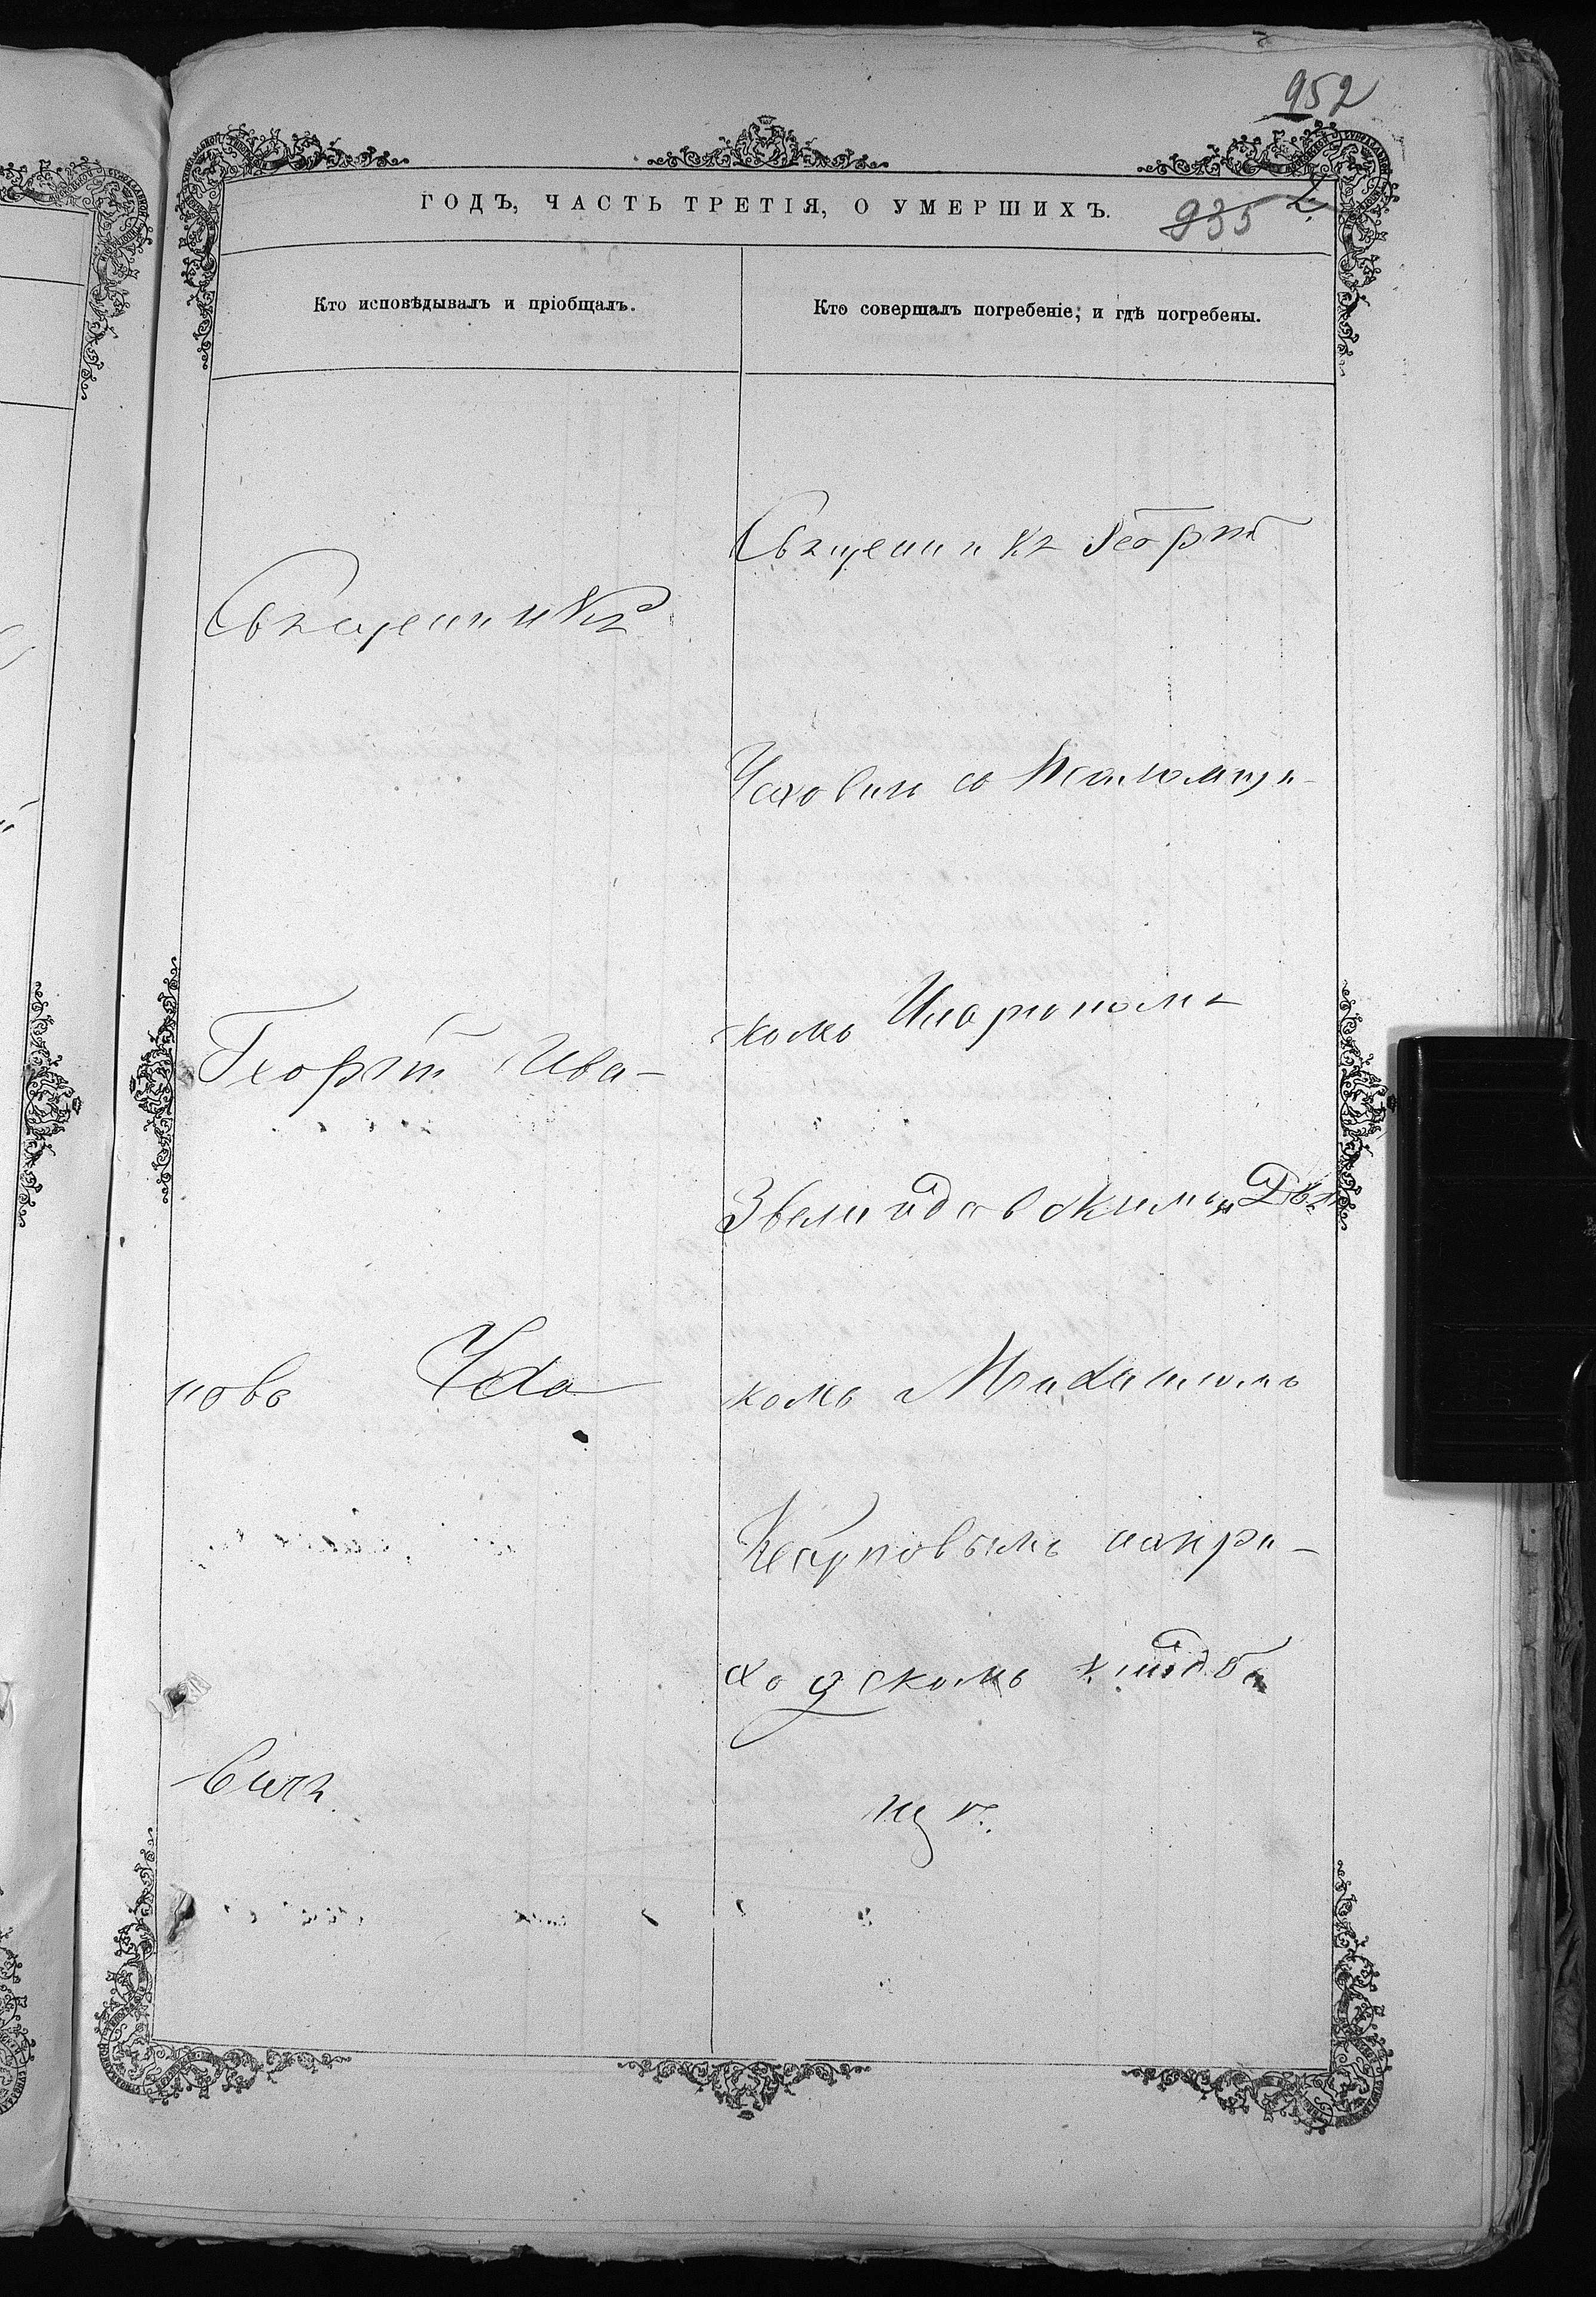 952
ГОДЪ, ЧАСТЬ ТРЕТІЯ, О УМЕРШИХЪ.
935
Кто исповѣдывалъ и пріобщалъ.
Кто совершалъ погребеніе; и гдѣ погребены.
Священникъ
Георгій Ива-
новъ Уха
вичъ.
Священникъ Георгій
Уховичъ со Псаломщи-
комъ Иларіономъ
комъ Михаиломъ
Карповымъ напри-
ходскомъ кладби
щѣ.